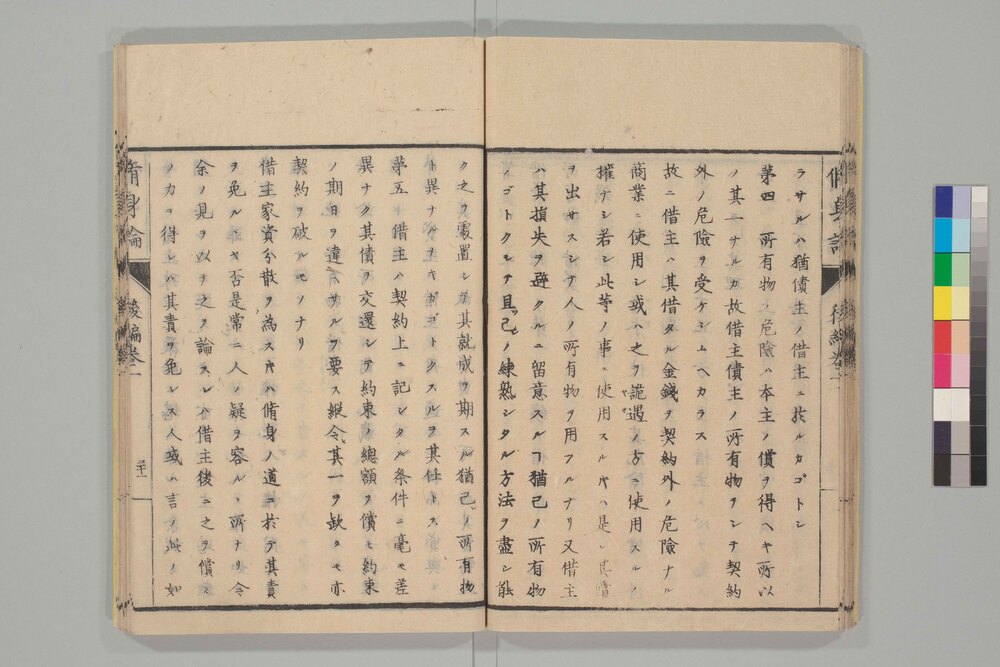 ラサルハ猶債主ノ借主ニ於ルカゴトシ
第四 所有物ノ危險ハ本主ノ償ヲ得ヘキ所以
ノ其一ナルカ故借主債主ノ所有物ヲシテ契約
外ノ危險ヲ受ケシムヘカラス
故ニ借主ハ其借タル金錢ヲ契約外ノ危險ナル
商業ニ使用シ或ハ之ヲ詭遇ノ方ニ使用スルノ
權ナシ若シ此等ノ事ニ使用スルヰハ是レ其償
ヲ出サスシテ人ノ所有物ヲ用フルナリ又借主
ハ其損失ヲ避クルニ留意スルヿ猶己ノ所有物
ノゴトクシテ且己ノ練熟シタル方法ヲ盡シ能
ク之ヲ處置シテ其就成ヲ期スル猶己ノ所有物
ト異ナルナキガゴトクスルヲ其任トス
第五 借主ハ契約上ニ記シタル条件ニ毫モ差
異ナク其債ヲ交還シテ約束ノ總額ヲ償モ約束
ノ期日ヲ違ヘサルヲ要ス縱令其一ヲ欽クモ亦
契約ヲ破ルモノナリ
借主家資分散ヲ為スヰハ脩身ノ道ニ於テ其責
ヲ免ルヽヤ否是常ニ人ノ疑ヲ容ルヽ所ナリ今
余ノ見ヲ以テ之ヲ論スレハ借主後ニ之ヲ償フ
ノカヲ得レハ其責ヲ免レス人或ハ言ノ此ノ如
脩身論
後編卷一
三十二